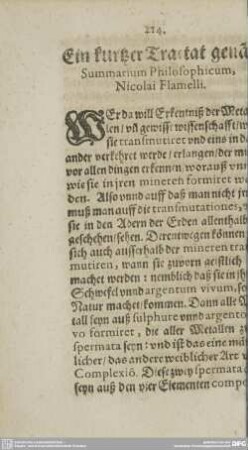 214.
Ein kurtzer Tractat genã
Summarium Philosophicum,
Nicolai Flamelli.
WEr da will Erkentniß der Meta
len / vñ gewiss: wissenschafft / w
sie transmutiret vnd eins in da
ander verkehret werde / erlangen / der mu
vor allen dingen erkennen, worauß vnd
wie sie in jren mineren formiret we
den. Also vnnd auff daß man nicht jr
muß man auff die transmutationes, w
sie in den Adern der Erden allenthalb
geschehen / sehen. Derentwegen können
sich auch ausserhalb der mineren tran
mutiren, wann sie zuvorn geistlich
machet werden: nemblich daß sie in jh
Schwefel vnnd argentum vivum, so
Natur machet / kommen. Dann alle M
tall seyn auß sulphure vnnd argento
vo formiret, die aller Metallen z
spermata seyn: vnd ist das eine mä
licher / das andere weiblicher Art v
Complexiõ. Diese zwey spermata
seyn auß den vier Elementen compo